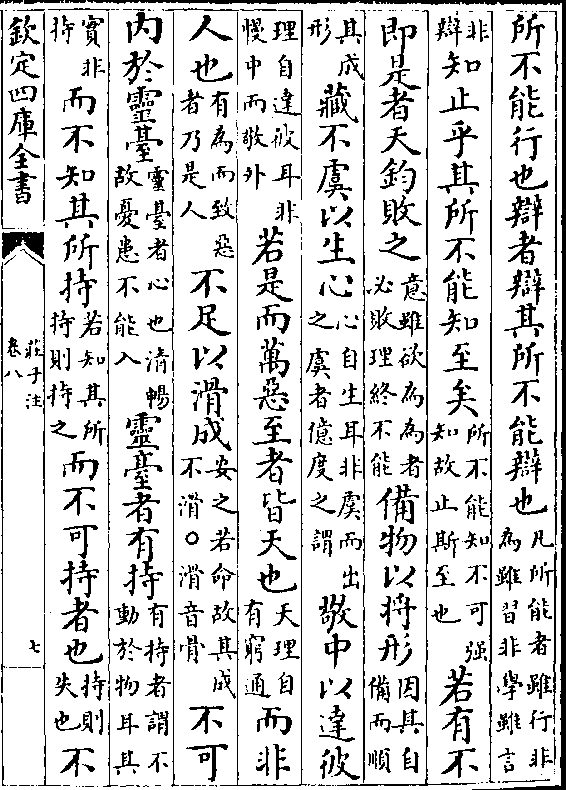 所不能行也辯者辯其所不能辯也凡所能者雖行非為雖習非學雖言
非辯知止乎其所不能知至矣所不能知不可强知故止斯至也若有不
即是者天鈞敗之意雖欲為為者必敗理終不能備物以將形因其自備而順
其成形藏不虞以生心心自生耳非虞而出之虞者億度之謂敬中以達彼
理自達彼耳非慢中而敬外若是而萬惡至者皆天也天理自有窮通而非
人也有為而致惡者乃是人不足以滑成安之若命故其成不滑○滑音骨不可
内於靈臺靈臺者心也清暢故憂患不能入靈臺者有持有持者謂不動於物耳其
實非持而不知其所持若知其所持則持之而不可持者也持則失也不
欽定四庫全書
莊子注
卷八
七